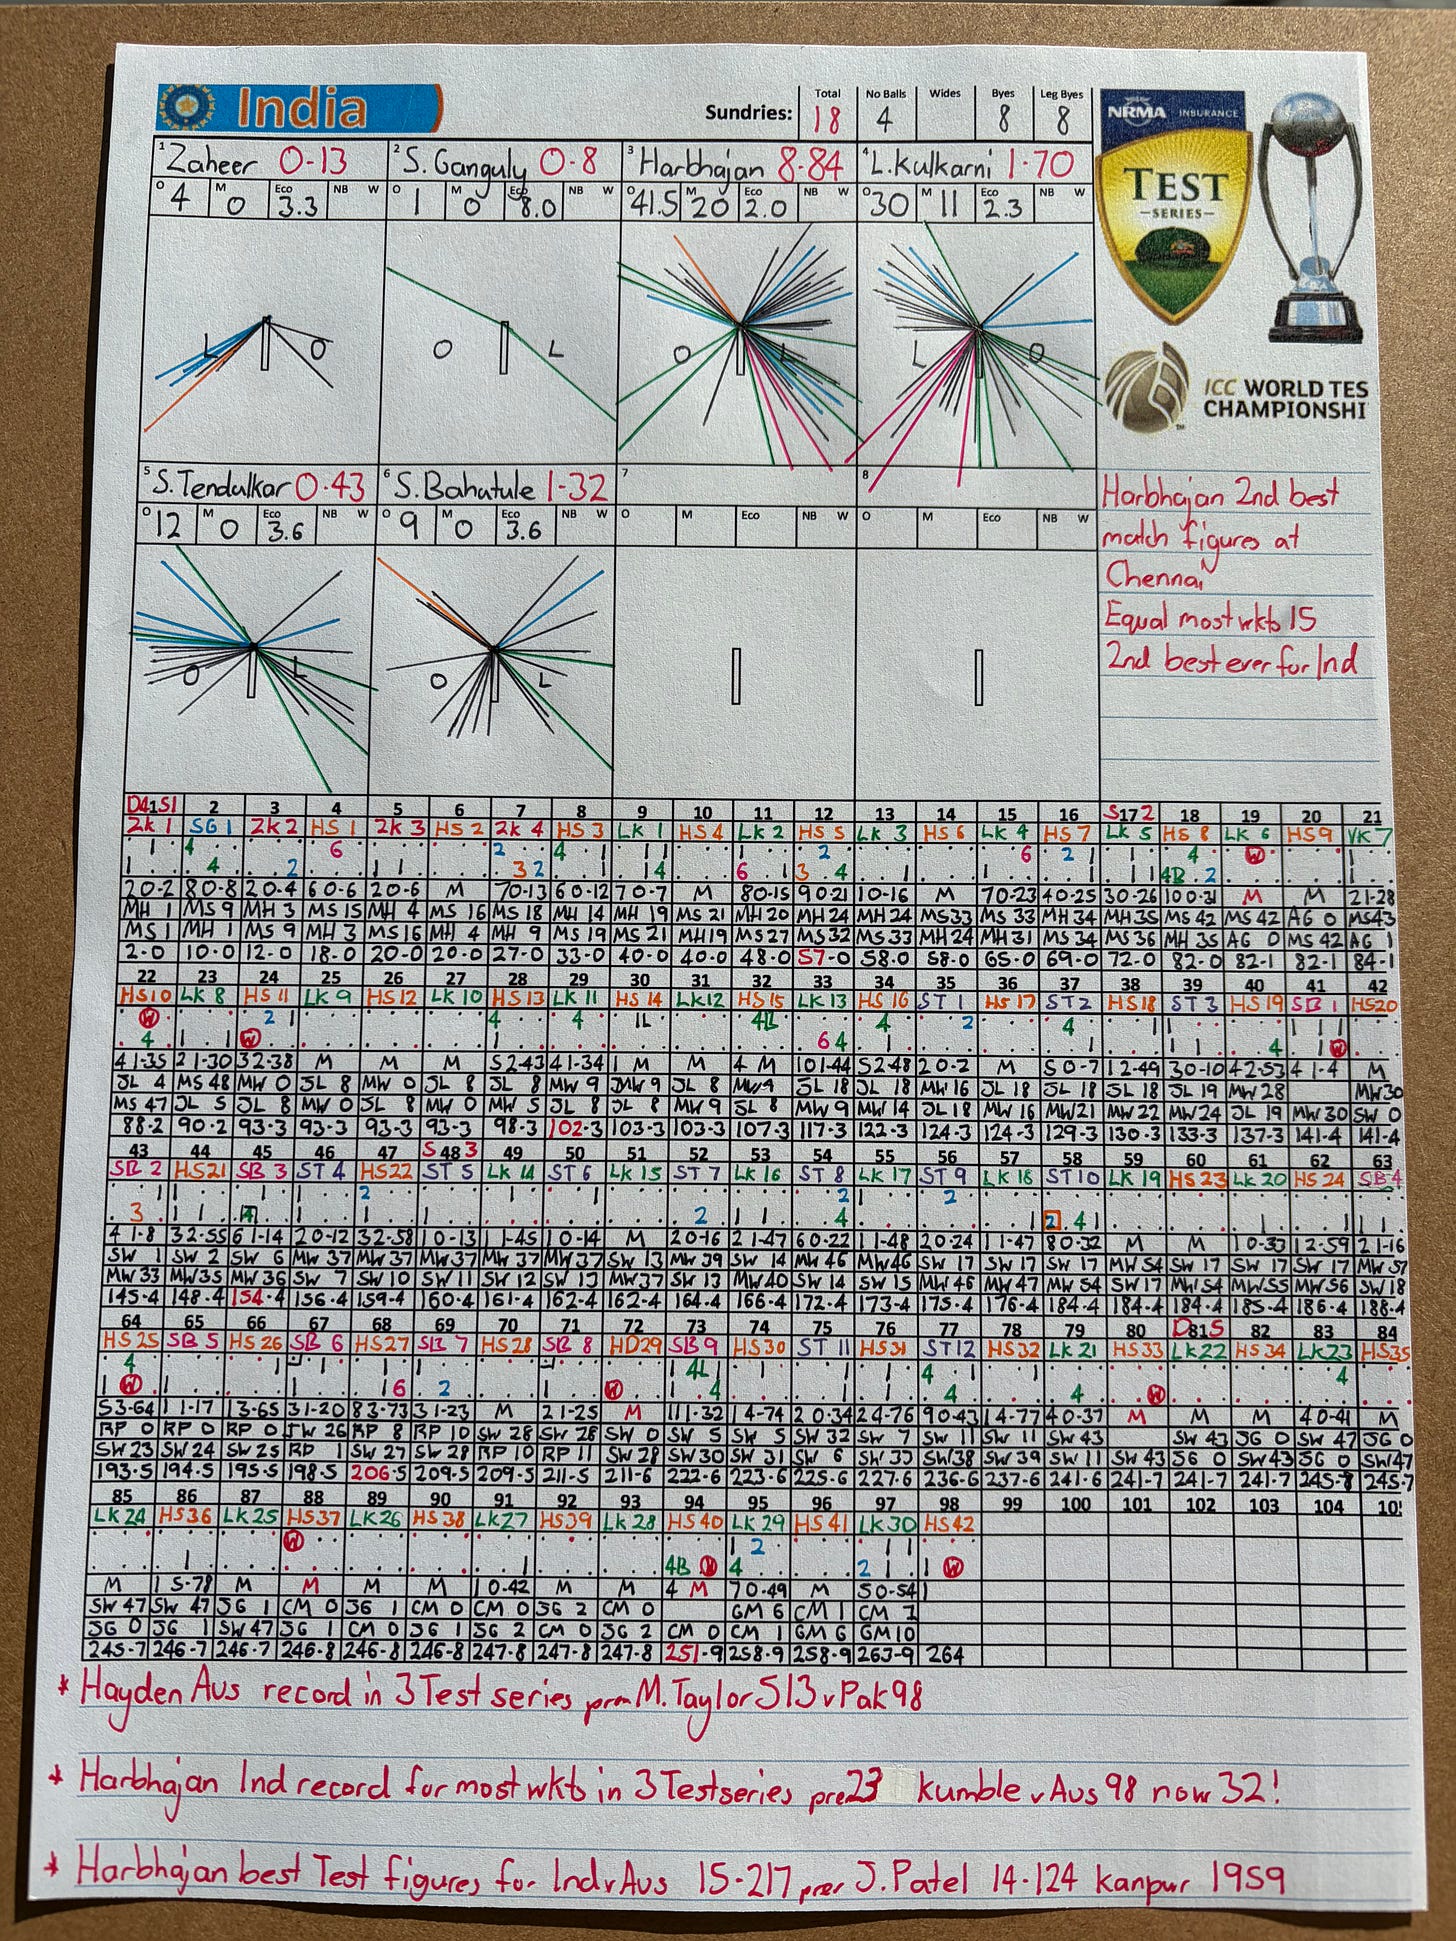 India
Sundries:
Total No Balls Wides Byes Leg Byes
18 4 8 8
1 Zaheer 0-13
2 S. Ganguly 0-8
3 Harbhajan 8-84
4 L. Kulkarni 1-70
O 4 M 0 Eco 3.3 NB W
O 1 M 0 Eco 8.0 NB W
O 41.5 M 20 Eco 2.0 NB W
O 30 M 11 Eco 2.3 NB W
L O
O L
O L
L O
NRMA INSURANCE
TEST
-SERIES-
ICC WORLD TES
CHAMPIONSHI
5 S. Tendulkar 0-43
6 S. Bahutule 1-32
7
8
O 12 M 0 Eco 3.6 NB W
O 9 M 0 Eco 3.6 NB W
O M Eco NB W
O M Eco NB W
O L
O L
Harbhajan 2nd best
match figures at
Chennai
Equal most wkts 15
2nd best ever for Ind
D41S1 2 3 4 5 6 7 8 9 10 11 12 13 14 15 16 S172 18 19 20 21
ZK 1 SG 1 ZK 2 HS 1 ZK 3 HS 2 ZK 4 HS 3 LK 1 HS 4 LK 2 HS 5 LK 3 HS 6 LK 4 HS 7 LK 5 HS 8 LK 6 HS 9 VK 7
20-2 80-8 20-4 60-6 20-6 M 70-13 60-12 70-7 M 80-15 90-21 10-16 M 70-23 40-25 30-26 100-31 M M 21-28
MH 1 MS 9 MH 3 MS 15 MH 4 MS 16 MS 18 MH 14 MH 19 MS 21 MH 20 MH 24 MH 24 MS 33 MS 33 MH 34 MH 35 MS 42 MS 42 AG 0 MS 43
MS 1 MH 1 MS 9 MH 3 MS 16 MH 4 MH 9 MS 19 MS 21 MH 19 MS 27 MS 32 MS 33 MH 24 MH 31 MS 34 MS 36 MH 35 AG 0 MS 42 AG 1
2-0 10-0 12-0 18-0 20-0 20-0 27-0 33-0 40-0 40-0 48-0 57-0 58-0 58-0 65-0 69-0 72-0 82-0 82-1 82-1 84-1
22 23 24 25 26 27 28 29 30 31 32 33 34 35 36 37 38 39 40 41 42
HS10 LK 8 HS 11 LK 9 HS12 LK 10 HS13 LK 11 HS 14 LK12 HS15 LK 13 HS 16 ST 1 HS 17 ST2 HS18 ST 3 HS19 SB 1 HS20
41-35 21-30 32-38 M M M 52-43 41-34 1 M M 4 M 101-44 52-48 20-2 M 50-7 12-49 30-10 42-53 41-4 M
JL 4 MS 48 MW 0 JL 8 MW 0 JL 8 JL 8 MW 9 MW 9 JL 8 MW 9 JL 18 JL 18 MW 16 JL 18 JL 18 JL 18 JL 19 MW 28 MW 30
MS 47 JL 5 JL 8 MW 0 JL 8 MW 0 MW 5 JL 8 JL 8 MW 9 JL 8 MW 9 MW 14 JL 18 MW 16 MW21 MW 22 MW 24 JL 19 MW 30 SW 0
88-2 90-2 93-3 93-3 93-3 93-3 98-3 102-3 103-3 103-3 107-3 117-3 122-3 124-3 124-3 129-3 130-3 133-3 137-3 141-4 141-4
43 44 45 46 47 S 48 3 49 50 51 52 53 54 55 56 57 58 59 60 61 62 63
SB 2 HS21 SB 3 ST 4 HS22 ST 5 LK 14 ST 6 LK 15 ST 7 LK 16 ST 8 LK 17 ST 9 LK 18 ST10 LK 19 HS 23 LK 20 HS 24 SB4
41-8 32-55 61-14 20-12 32-58 10-13 11-45 10-14 M 20-16 21-47 60-22 11-48 20-24 11-47 80-32 M M 10-33 12-59 21-16
SW 1 SW 2 SW 6 MW 37 MW 37 MW37 MW 37 MW 37 SW 13 MW 39 SW 14 MW 46 MW46 SW 17 SW 17 SW 17 MW 54 SW 17 SW 17 SW 17 MW 57
MW 33 MW35 MW 36 SW 7 SW 10 SW 11 SW 12 SW 13 MW37 SW 13 MW40 SW 14 SW 15 MW 46 MW47 MW 54 SW17 MW54 MW55 MW56 SW18
145-4 148-4 154-4 156-4 159-4 160-4 161-4 162-4 162-4 164-4 166-4 172-4 173-4 175-4 176-4 184-4 184-4 184-4 185-4 186-4 188-4
64 65 66 67 68 69 70 71 72 73 74 75 76 77 78 79 80 D81S 82 83 84
HS 25 SB 5 HS 26 SB 6 HS27 SB 7 HS28 SB 8 HD29 SB 9 HS30 ST 11 HS31 ST12 HS32 LK 21 HS33 LK22 HS 34 LK23 HS35
53-64 11-17 13-65 31-20 83-73 31-23 M 21-25 M 111-32 14-74 20-34 24-76 90-43 14-77 40-37 M M M 40-41 M
RP 0 RP 0 RP 0 SW 26 RP 8 RP 10 SW 28 SW 28 SW 0 SW 5 SW 5 SW 32 SW 7 SW 11 SW 11 SW 43 SW 43 JG 0 SW 47 JG 0
SW 23 SW 24 SW 25 RP 1 SW 27 SW 28 RP 10 RP 11 SW 28 SW30 SW 31 SW 6 SW 33 SW 38 SW 39 SW 11 SW 43 SG 0 SW43 SG 0 SW47
193-5 194-5 195-5 198-5 206-5 209-5 209-5 211-5 211-6 222-6 223-6 225-6 227-6 236-6 237-6 241-6 241-7 241-7 241-7 245-7 245-7
85 86 87 88 89 90 91 92 93 94 95 96 97 98 99 100 101 102 103 104 10
LK 24 HS36 LK25 HS37 LK26 HS 38 LK27 HS39 LK 28 HS40 LK 29 HS 41 LK30 HS42
M 15-78 M M M M 10-42 M M 4 M 70-49 M 50-54
SW 47 SW 47 JG 1 CM 0 JG 1 CM 0 CM 0 JG 2 CM 0 GM 6 CM 1 CM 7
JG 0 JG 1 SW47 JG 1 CM 0 JG 1 JG 2 CM 0 JG 2 CM 0 CM 1 GM 6 GM10
245-7 246-7 246-7 246-8 246-8 246-8 247-8 247-8 247-8 251-9 258-9 258-9 263-9 264
* Hayden Aus record in 3 Test series prev M. Taylor 513 v Pak 98
* Harbhajan Ind record for most wkts in 3 Test series pre 23 Kumble v Aus 98 now 32!
* Harbhajan best Test figures for Ind v Aus 15-217 prev J. Patel 14-124 Kanpur 1959